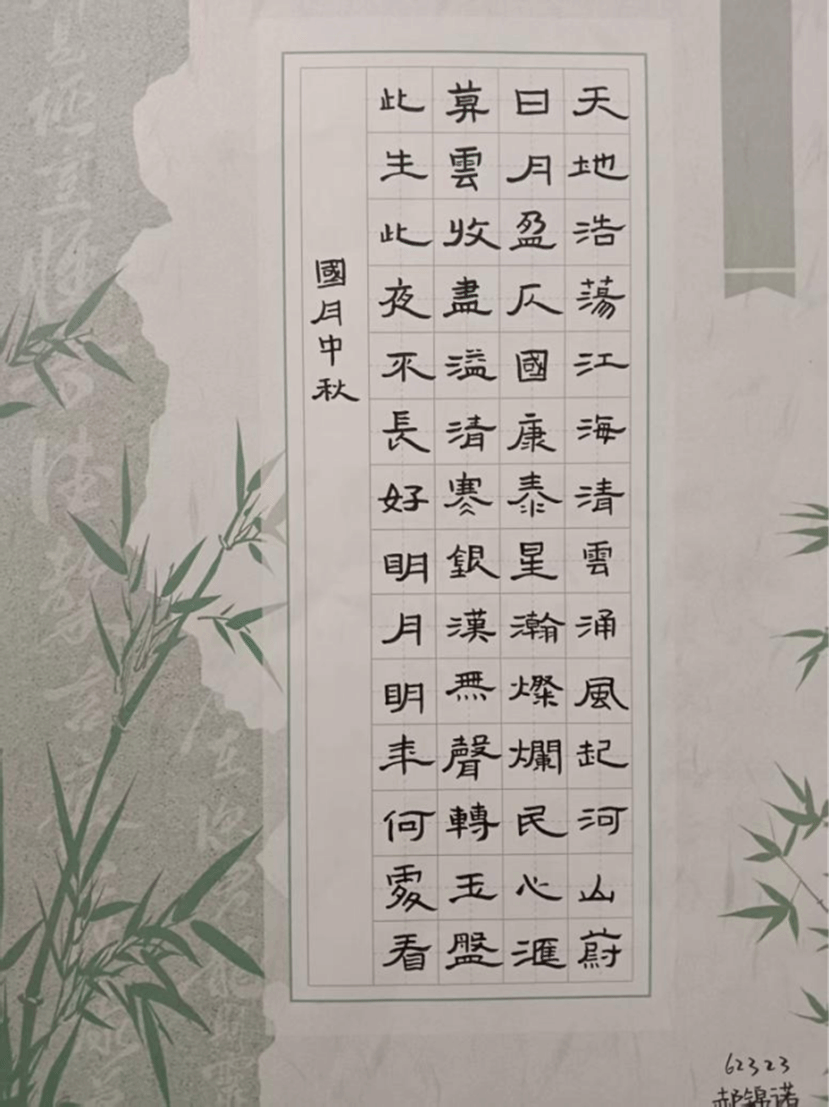 天地浩蕩江海清雲涌風起河山蔚
日月盈仄國康泰星瀚燦爛民心滙
莫雲收盡溢清寒銀漢無聲轉玉盤
此生此夜不長好明月明年何處看
國月中秋
62323
郝錦诺